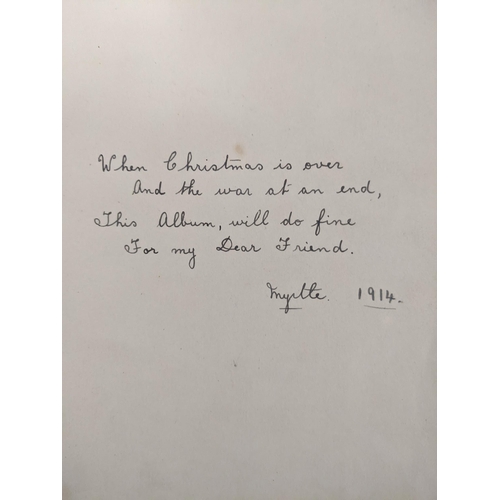 When Christmas is over
And the war at an end,
This Album, will do fine
For my Dear Friend.
Myrtte. 1914.